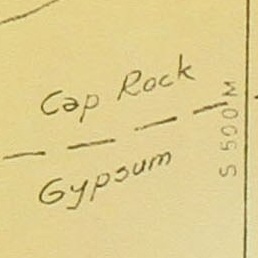 Cap Rock
Gypsum
S 500 M